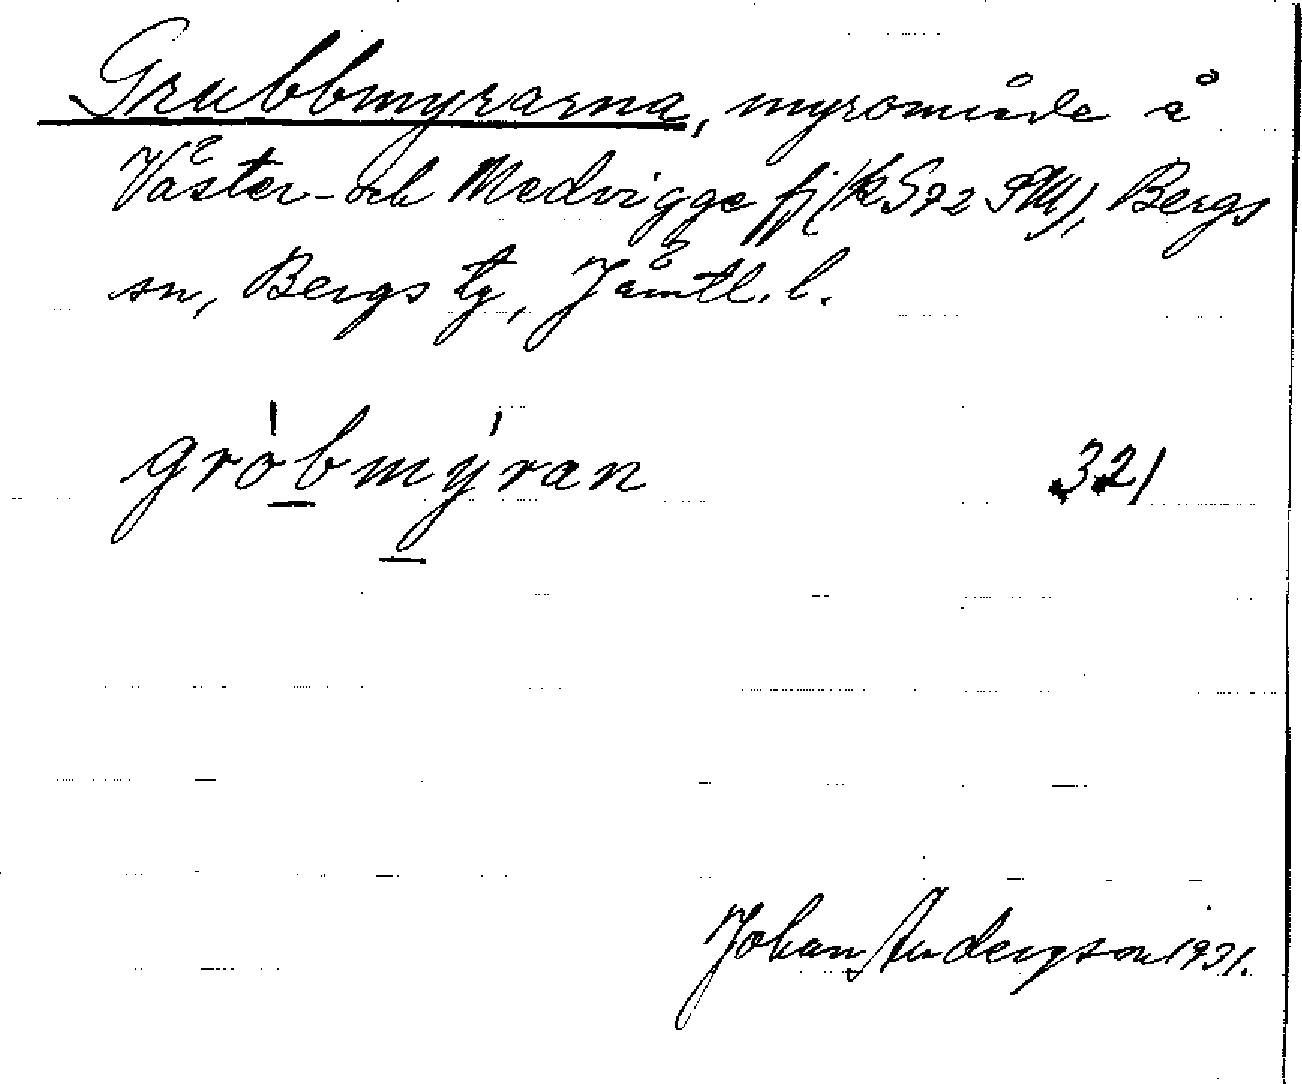 Grubbmyrarna, myrområde å
Väster- och Medvigge fj (k S92 SM), Bergs
sn, Bergs tg, Jämtl. l.
gròbmýran 321
Johan Anderson 1931.